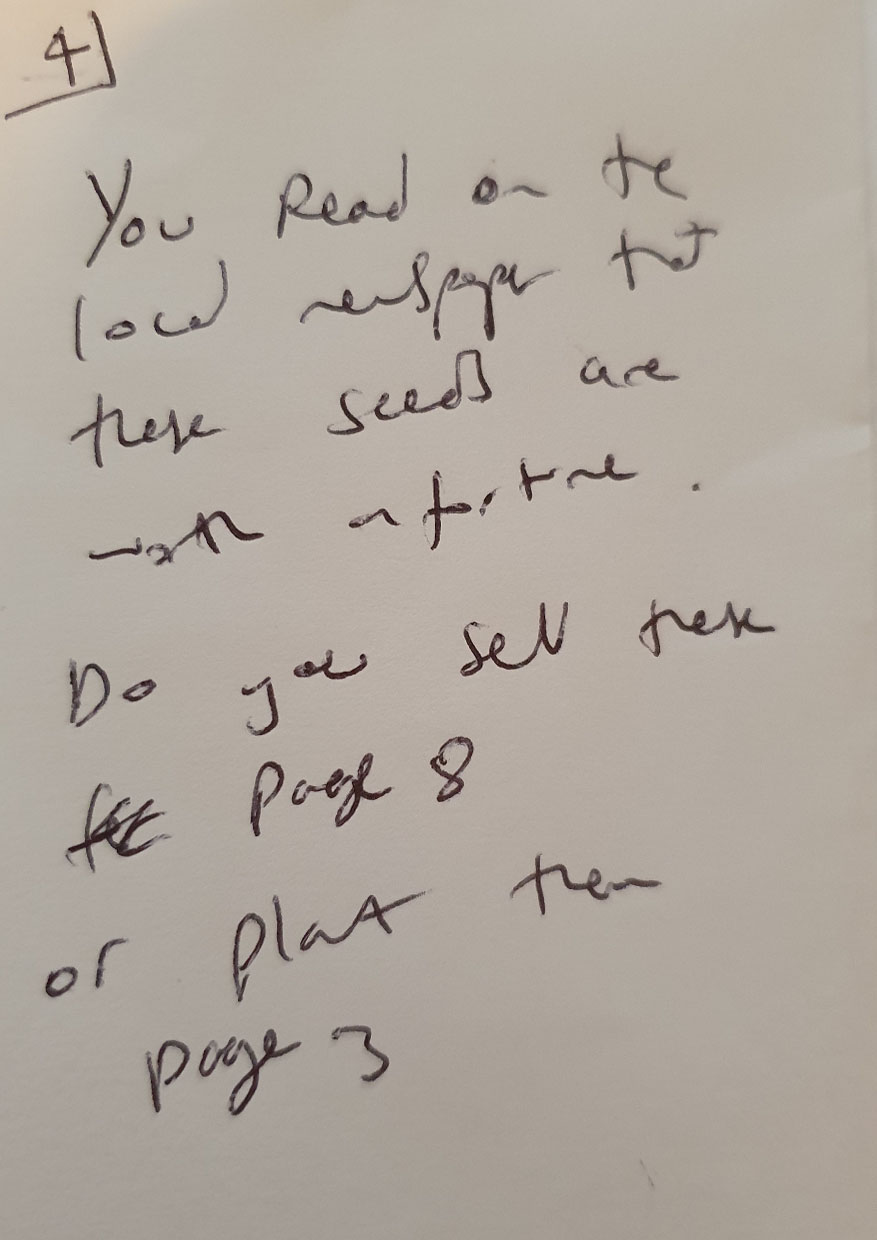 4
You Read on the
local newspaper that
these seeds are
worth a fortune.
Do you sell these
Page 8
or plant them
page 3